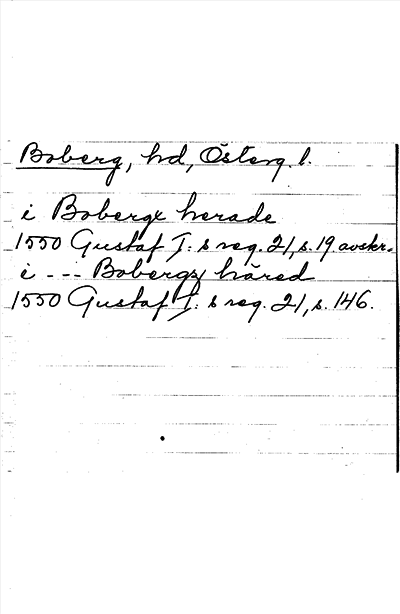 Boberg, hd, Österg. l.
i Bobergx herade
1550 Gustaf I: s reg. 21, s. 19 avskr.
i --- Bobergz häred
1550 Gustaf I: s reg. 21, s. 146.